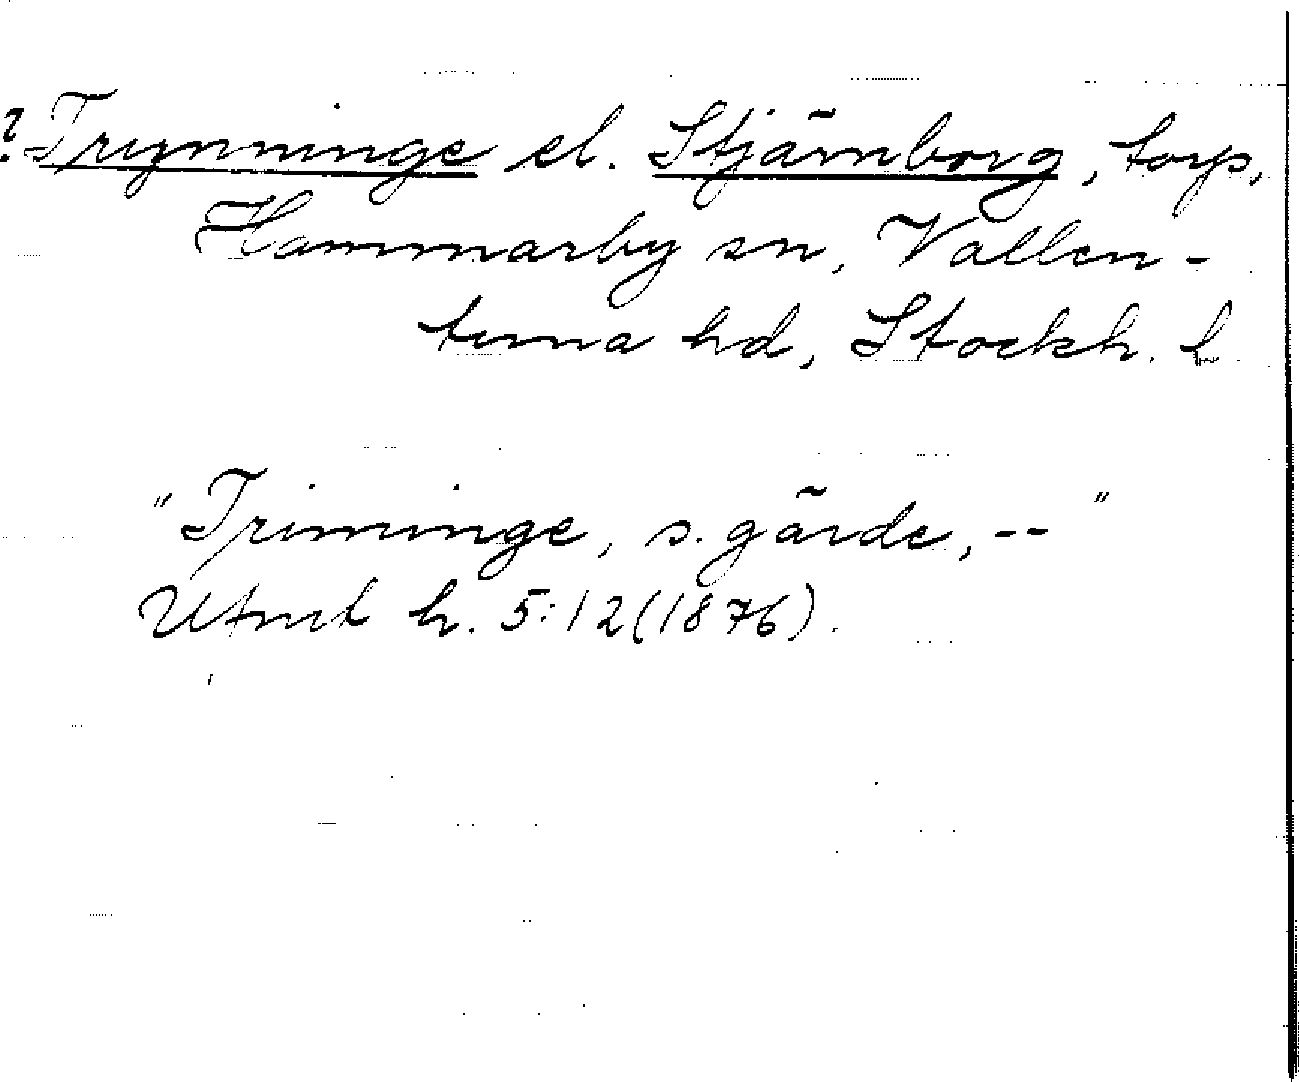 ? Trynninge el. Stjärnborg, torp,
Hammarby sn, Vallen-
tuna hd, Stockh. l
"Trininge, s. gärde, -- "
Utmrk h. 5:12 (1876).